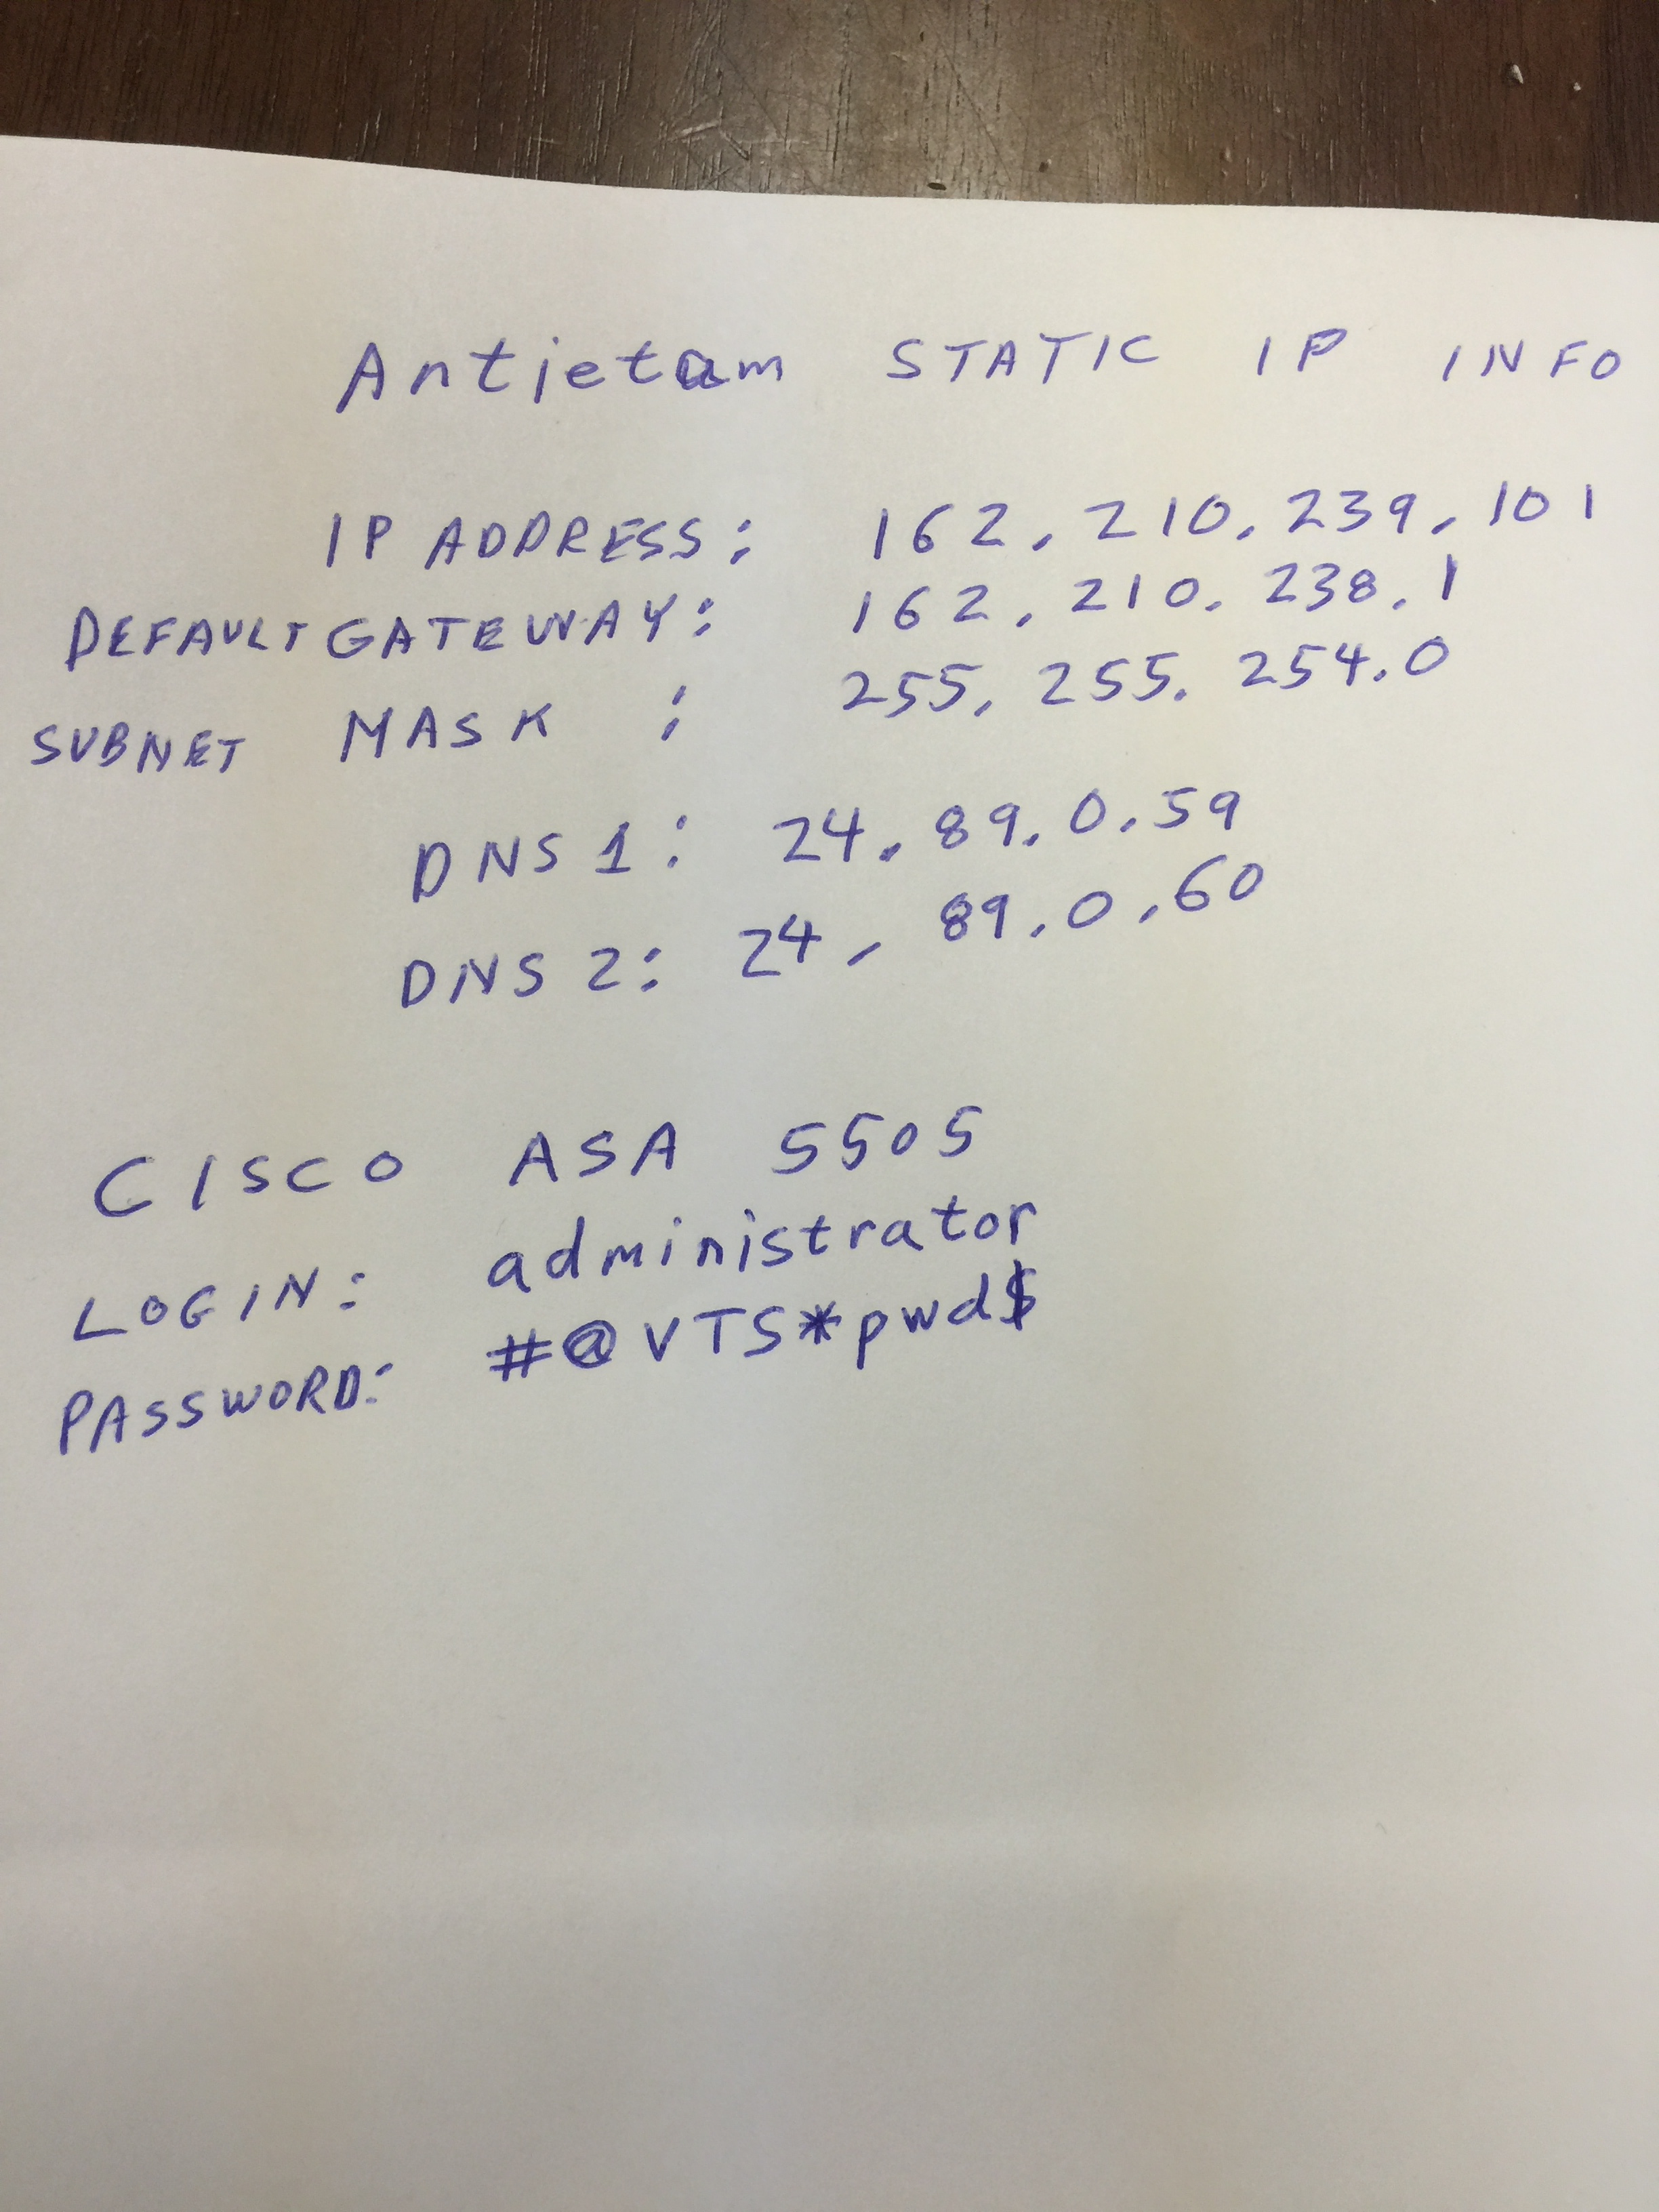 Antietam STATIC IP INFO
IP ADDRESS: 162.210.239.101
DEFAULT GATEWAY: 162.210.238.1
SUBNET MASK : 255.255.254.0
DNS 1: 24.89.0.59
DNS 2: 24.89.0.60
CISCO ASA 5505
LOGIN: administrator
PASSWORD: #@VTS*pwd$